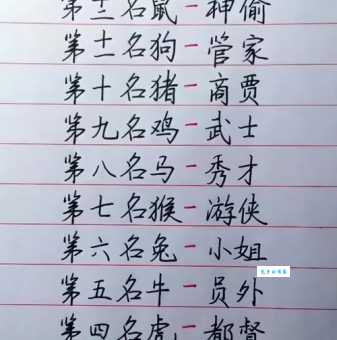 第十二名鼠－神偷
第十一名狗－管家
第十名猪－商贾
第九名鸡－武士
第八名马－秀才
第七名猴－游侠
第六名兔－小姐
第五名牛－员外
第四名虎－都督